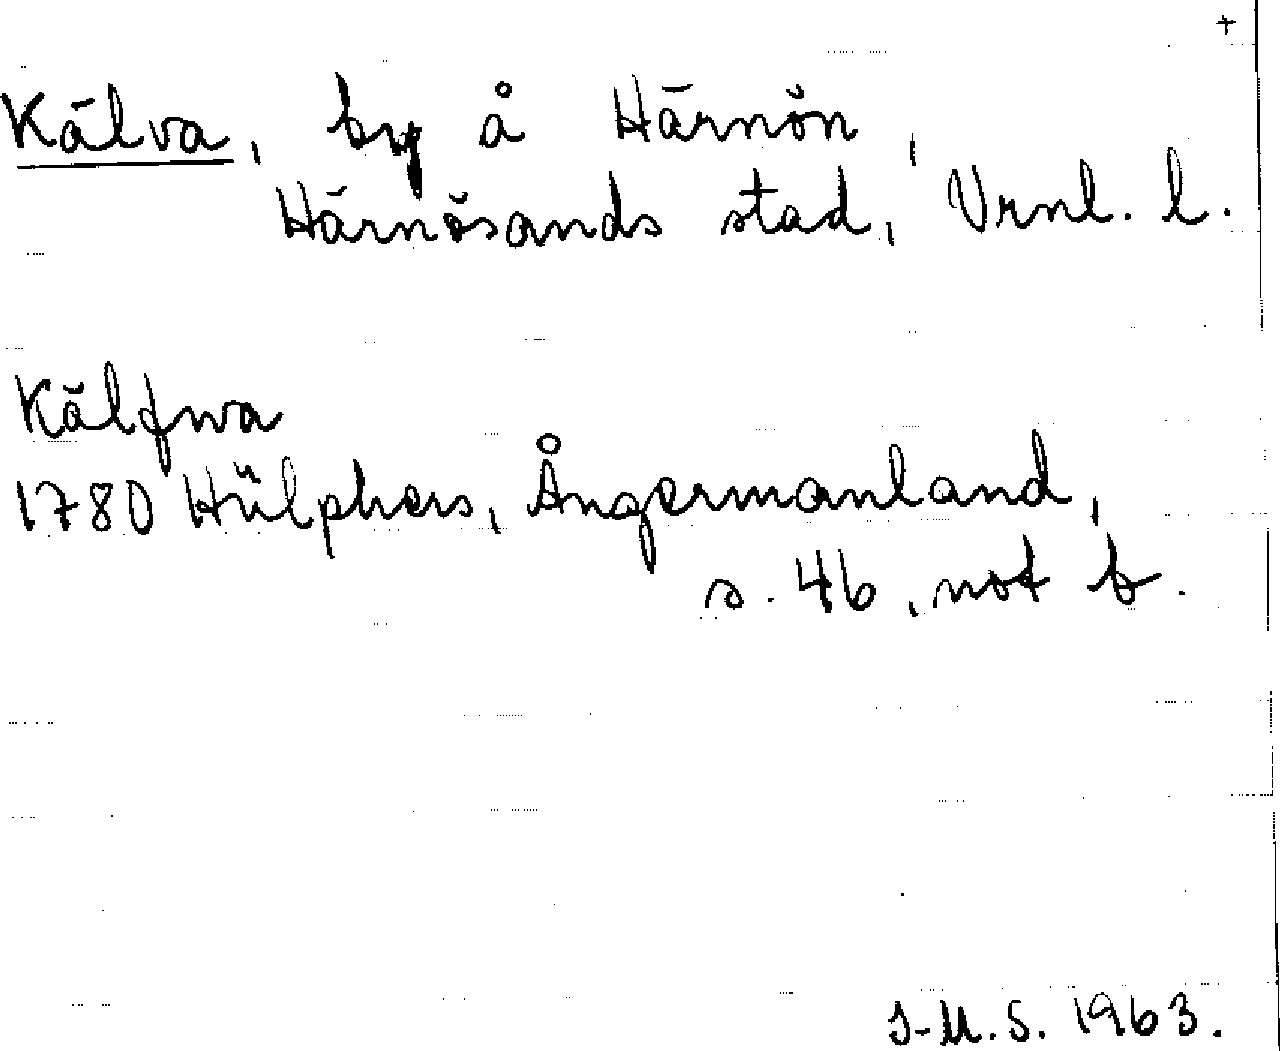 +
Kälva, by å Härnön,
Härnösands stad, Vrnl. l.
Kälfwa
1780 Hülphers, Ångermanland,
s. 46, not b.
I-M.S. 1963.